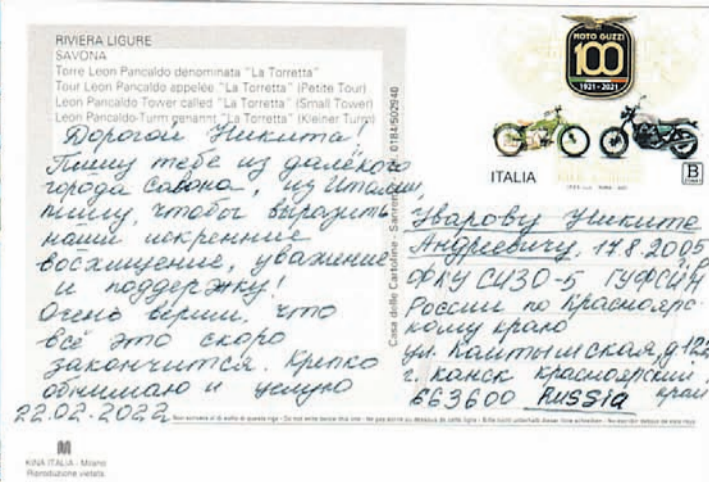 RIVIERA LIGURE
SAVONA
Torre Leon Pancaldo denominata "La Torretta"
Tour Leon Pancaldo appelée "La Torretta" (Petite Tour)
Leon Pancaldo Tower called "La Torretta" (Small Tower)
Leon Pancaldo-Turm genannt "La Torretta" (Kleiner Turm)
Дорогой Никита!
Пишу тебе из далёкого
города Савона, из Италии,
пишу, чтобы выразить
наши искренние
восхищение, уважение
и поддержку!
Очень верим, что
всё это скоро
закончится. Крепко
обнимаю и целую
22.02.2022
Casa delle Cartoline - Sanremo Tel. 0184/502940
MOTO GUZZI
100
1921-2021
ITALIA
B
Уварову Никите
Андреевичу, 17.8.2005
ФКУ СИЗО-5 ГУФСИН
России по Красноярс-
кому краю
ул. Кайтымская, д 122
г. Канск красноярский
край
663600 RUSSIA
KINA ITALIA - Milano
Riproduzione vietata